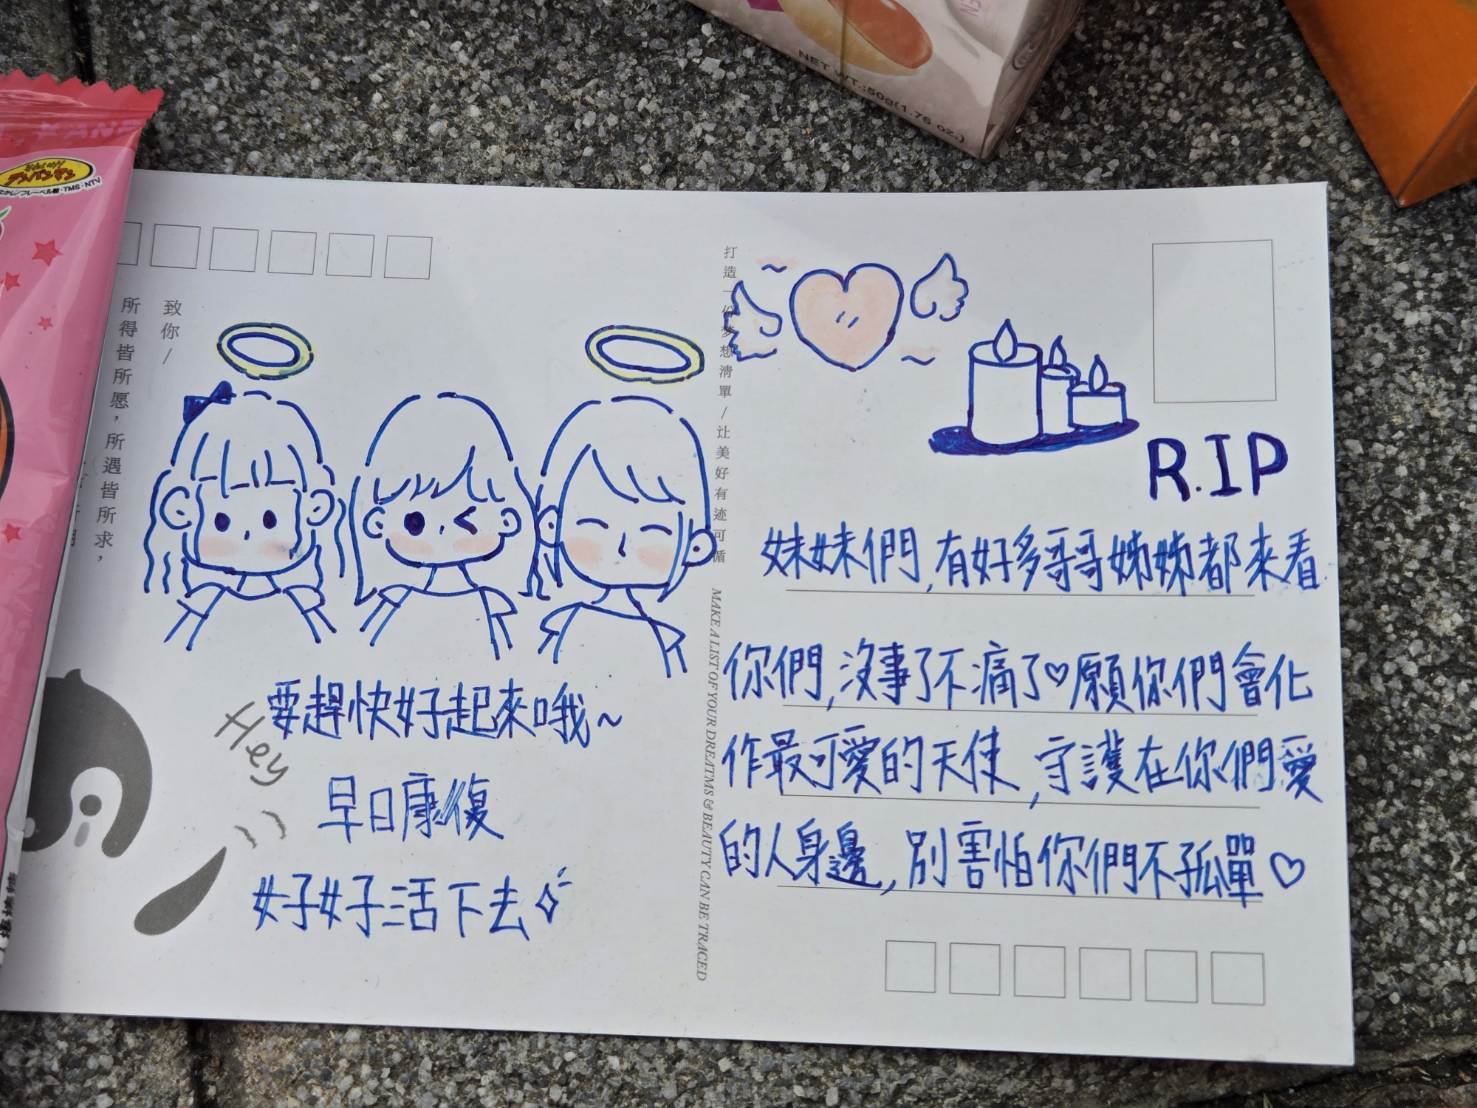 NET WT.:50g(1.76 oz.)
TMS・NTV
致你/
所得皆所愿，所遇皆所求，
打造一份梦想清單/让美好有迹可循
MAKE A LIST OF YOUR DREATMS & BEAUTY CAN BE TRACED
R.I.P
妹妹們,有好多哥哥姊姊都來看
你們,沒事了不痛了♡願你們會化
作最可愛的天使,守護在你們愛
的人身邊,別害怕你們不孤單♡
要趕快好起來哦~
Hey
早日康復
好好活下去